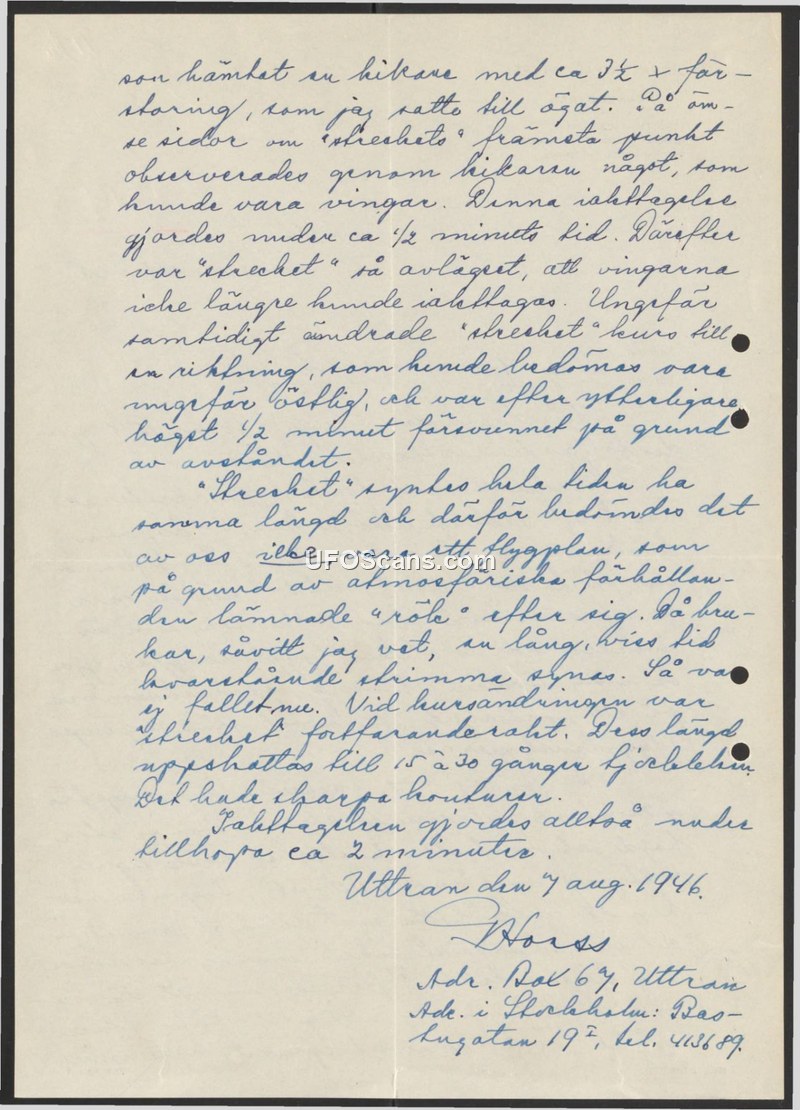 son hämtat en kikare med ca 3½ x för-
storing, som jag satte till ögat. På öm-
se sidor om "streckets" främsta punkt
observerades genom kikaren något, som
kunde vara vingar. Denna iakttagelse
gjordes under ca 1/2 minuts tid. Därefter
var "strecket" så avlägset, att vingarna
icke längre kunde iakttagas. Ungefär
samtidigt ändrade "strecket" kurs till
en riktning, som kunde bedömas vara
ungefär östlig, och var efter ytterligare
högst 1/2 minut försvunnet på grund
av avståndet.
"Strecket" syntes hela tiden ha
samma längd och därför bedömdes det
av oss icke vara ett flygplan, som
på grund av atmosfäriska förhållan-
den lämnade "rök" efter sig. Då bru-
kar, såvitt jag vet, en lång, viss tid
kvarstående strimma synas. Så var
ej fallet nu. Vid kursändringen var
"strecket" fortfarande rakt. Dess längd
uppskattas till 15 à 30 gånger tjockleken.
Det hade skarpa konturer.
Iakttagelsen gjordes alltså under
tillhopa ca 2 minuter.
Uttran den 7 aug. 1946.
Adr. Box 67, Uttran
Adr. i Stockholm: Bas-
tugatan 19 I, tel. 413689.
UFOScans.com